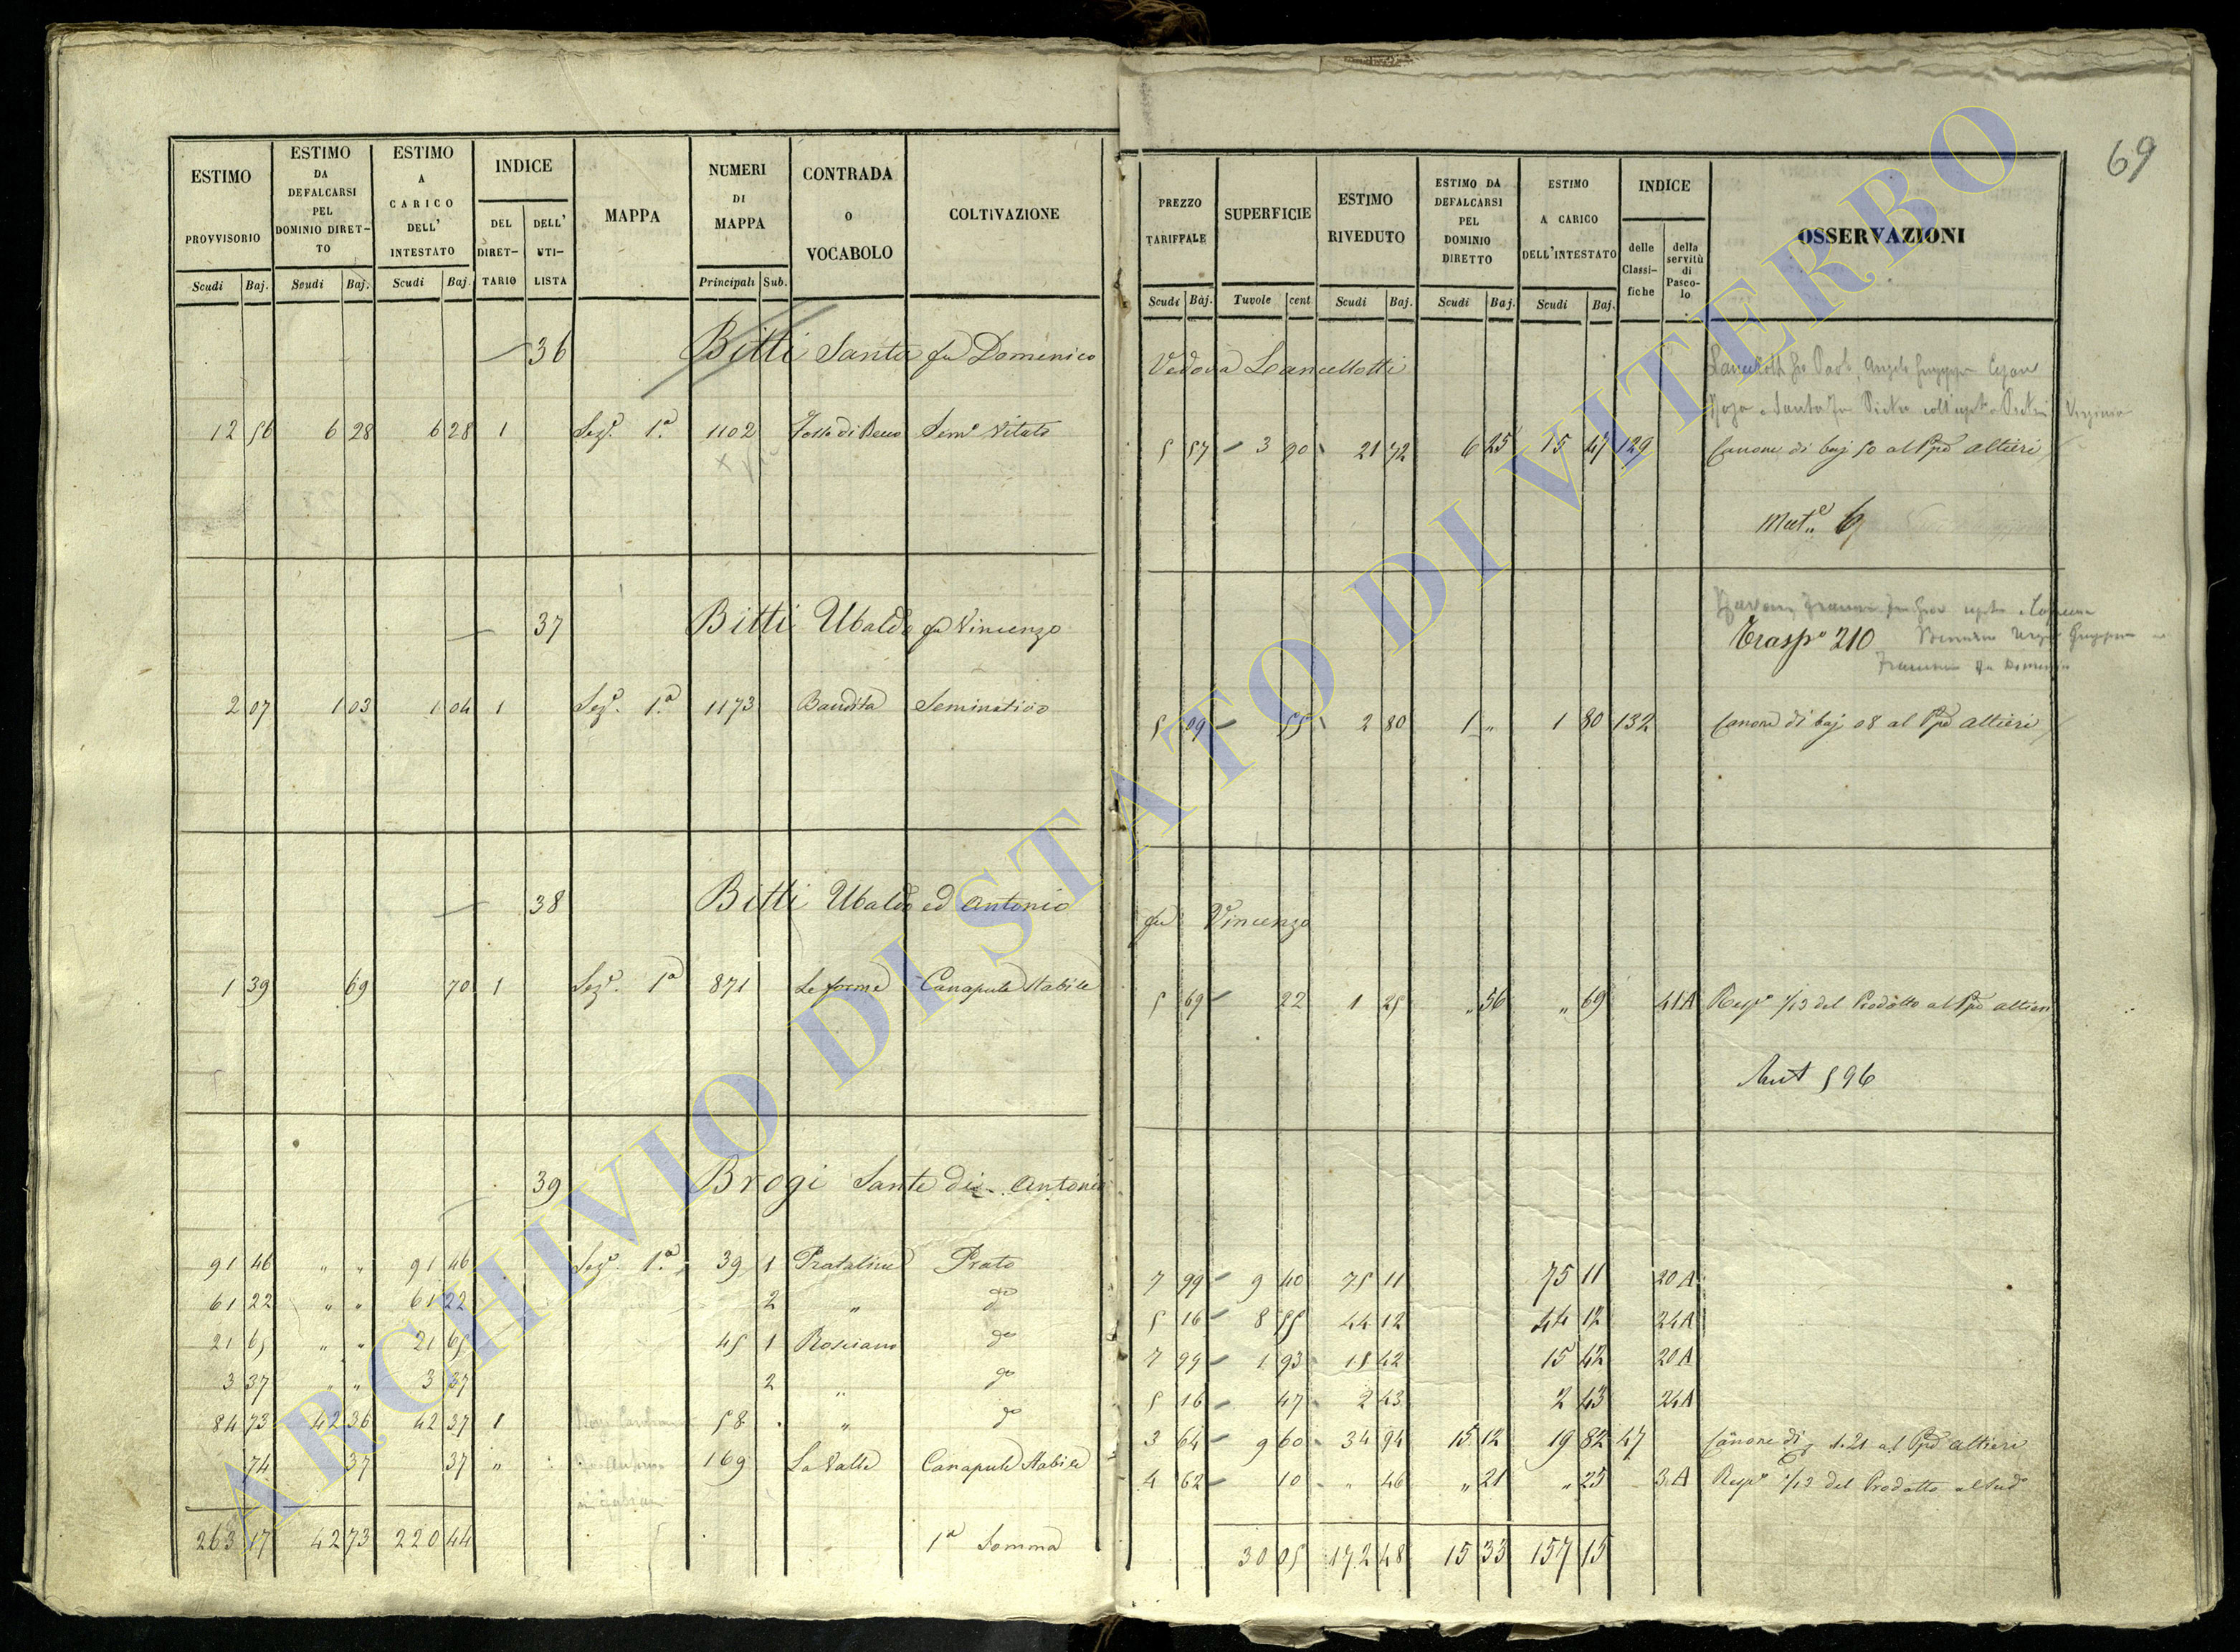 69
ESTIMO PROVVISORIO Scudi Baj.
ESTIMO DA DEFALCARSI PEL DOMINIO DIRET- TO Scudi Baj.
ESTIMO A CARICO DELL' INTESTATO Scudi Baj.
INDICE DEL DIRET- TARIO DELL' UTI- LISTA
MAPPA
NUMERI DI MAPPA Principali Sub.
CONTRADA O VOCABOLO
COLTIVAZIONE
PREZZO TARIFFALE Scudi Baj.
SUPERFICIE Tavole cent
ESTIMO RIVEDUTO Scudi Baj.
ESTIMO DA DEFALCARSI PEL DOMINIO DIRETTO Scudi Baj.
ESTIMO A CARICO DELL'INTESTATO Scudi Baj.
INDICE delle Classi- fiche della servitù di Pasco- lo
OSSERVAZIONI
36 Bitti Santa fu Domenico Vedova Lancellotti
12 56 6 28 6 28 1 Seze. 1.a 1102 Semo Vitato 5 57 3 90 21 72 6 25 15 47 129 Canone di baj 50 al Ppe Altieri
Mut.e 6
37 Bitti Ubaldo fu Vincenzo
Traspo 210
2 07 1 03 1 04 1 Seze. 1.a 1173 Bandita Seminativo 5 09 55 2 80 1 „ 1 80 132 Canone di baj 08 al Ppe Altieri
38 Bitti Ubaldo ed Antonio fu Vincenzo
1 39 69 70 1 Seze. 1a 871 Le forme Canapule Stabile 5 69 22 1 25 „ 56 „ 69 41A Rispe 1/13 del Prodotto al Ppe Altieri
Mut 596
39 Brogi Sante di Antonio
91 46 „ „ 91 46 Seze. 1.a 39 1 Prataline Prato 7 99 9 40 75 11 75 11 20 A
61 22 „ „ 61 22 2 „ do 5 16 8 55 44 12 44 12 24A
21 65 „ „ 21 65 45 1 Rosciano do 7 99 1 93 15 42 15 42 20A
3 37 „ „ 3 37 2 „ do 5 16 47 2 43 2 43 24A
84 73 42 36 42 37 1 58 „ do 3 64 9 60 34 94 15 12 19 82 47 Canone di 1.21 al Ppe Altieri
74 37 37 „ 169 La Valle Canapule Stabile 4 62 10 „ 46 „ 21 „ 25 3A Rispe 1/13 del Prodotto al Sudo
263 17 42 73 220 44 1a Somma 30 05 172 48 15 33 157 15
ARCHIVIO DI STATO DI VITERBO